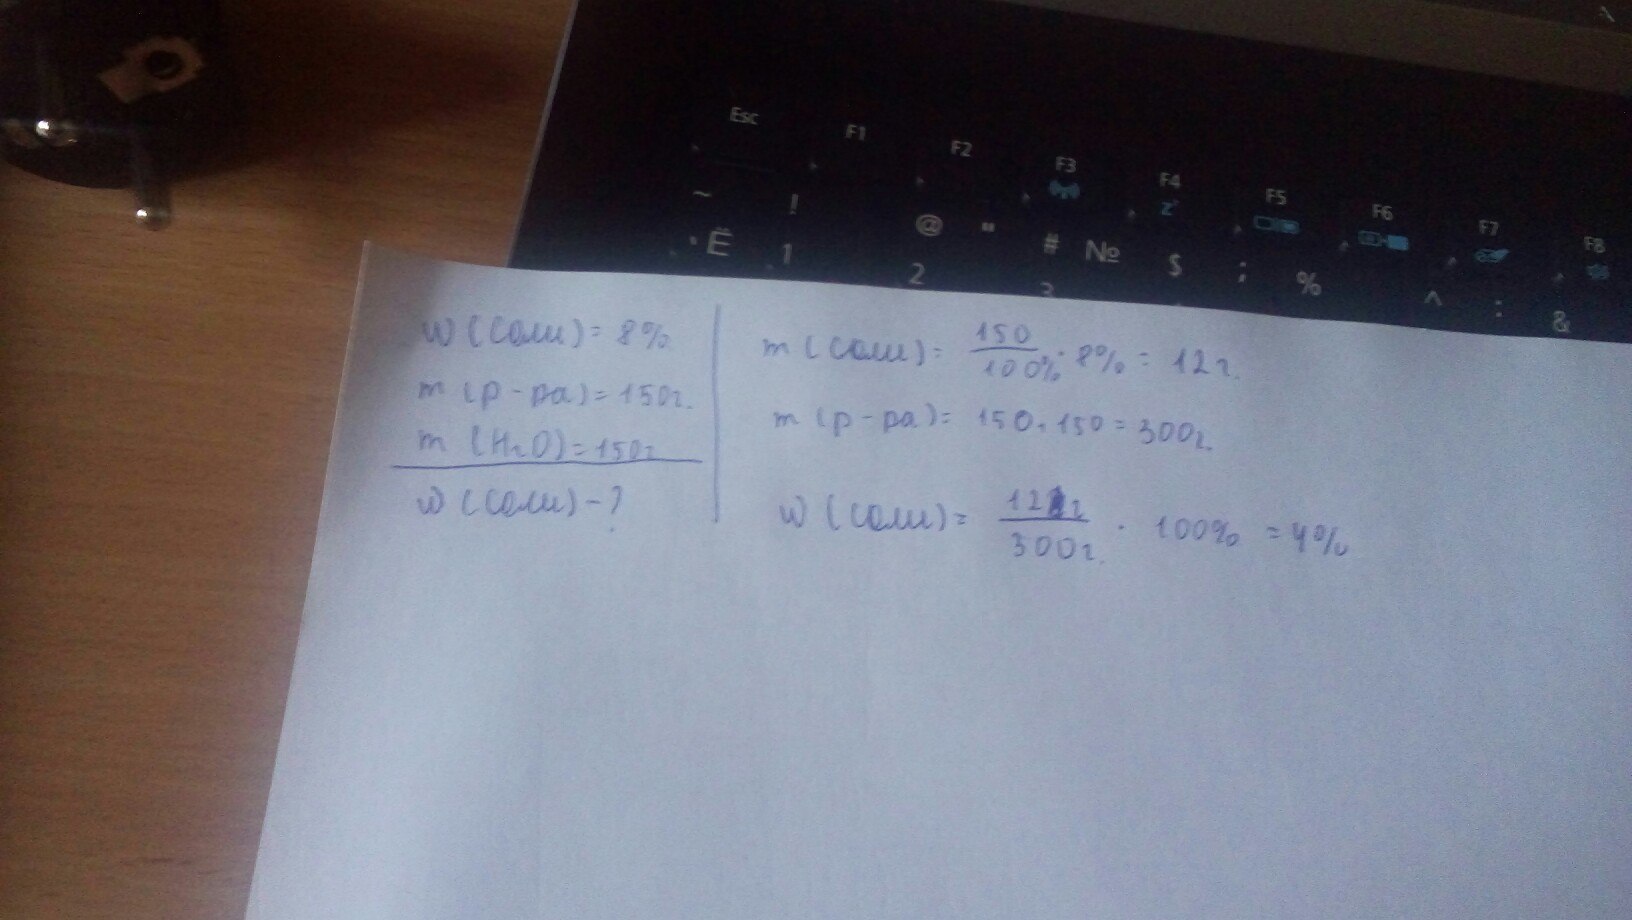 Esc F1 F2 F3 F4 F5 F6 F7 F8
~ ! @ " # № $ ; % ^ : &
Ё 1 2 3
w (соли) = 8%
m (р-ра) = 150г.
m (H₂O) = 150г
w (соли) - ?
m (соли) = 150/100% · 8% = 12г.
m (р-ра) = 150+150 = 300г.
w (соли) = 12г/300г. · 100% = 4%